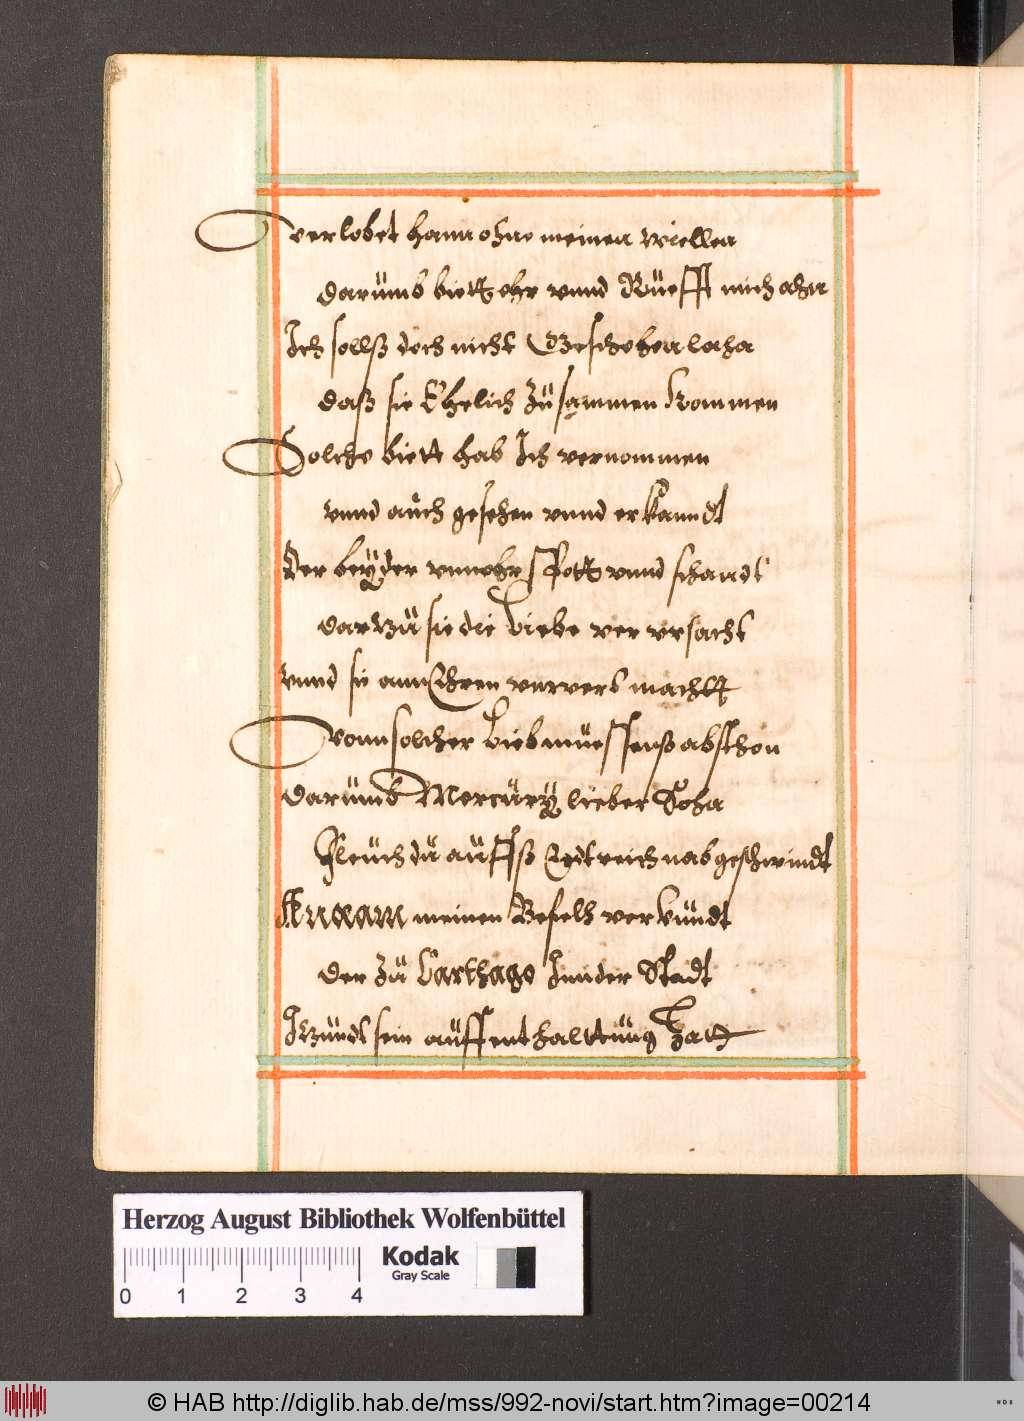 verlobet hann ohne meinen wiellen
darümb biett ehr vnnd Rüefft mich ahn
Ich sollß doch nicht Geschehen lahn
daß sie Ehelich Züsammen Kommen
Solche biett hab Ich vernommen
vnnd aüch gesehen vnnd erkanndt
der beÿder vnnehr Spott vnnd schandt
darZü sie die Liebe ver vrsacht
vnnd sie ann Ehren vnwert machtt
vonn solcher Lieb müessenß abstehen
darümb Mercürÿ lieber Sohn
Fleüch dü aüffß Erdtreich nab geschwindt
Aneam meinen Befelh verkündt
der Zü Carthago Inn der Stadt
IrZündt sein aüffenthalttüng hatt
Herzog August Bibliothek Wolfenbüttel
Kodak
Gray Scale
0 1 2 3 4
© HAB http://diglib.hab.de/mss/992-novi/start.htm?image=00214